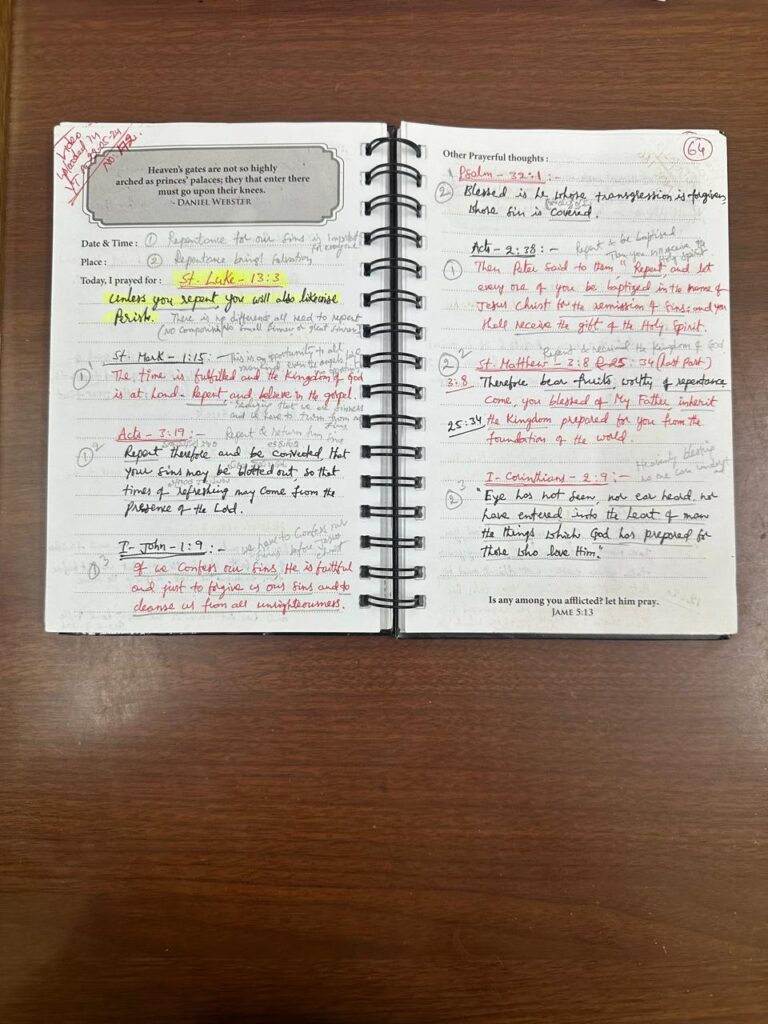 Video
uploaded in
YT 29-05-24
No. 172.
Heaven's gates are not so highly
arched as princes' palaces; they that enter there
must go upon their knees.
~ DANIEL WEBSTER
Date & Time : ① Repentance for our Sins is important
for everyone
Place : ② Repentance brings Salvation
Today, I prayed for : St. Luke - 13:3
Unless you repent you will also likewise
Perish. There is no different all need to repent
(No comparison No small Sinner or great Sinner)
St. Mark - 1:15 : - This is an opportunity to all
①¹ The time is fulfilled and the Kingdom of God
is at hand - Repent, and believe in the gospel.
that we are Sinners
and we have to turn from
Acts - 3:19 : - Repent & return from Sins
①² Repent therefore and be converted that
your Sins may be blotted out, so that
times of refreshing may come from the
presence of the Lord.
I - John - 1:9 : - we have to Confess our
Sins before
①³ If we Confess our Sins, He is faithful
and just to forgive us our Sins and to
cleanse us from all unrighteousness.
64
Other Prayerful thoughts :
Psalm - 32:1 : -
②¹ Blessed is he whose transgression is forgiven,
whose Sin is Covered.
Acts - 2:38 : - Repent & be baptised
Then you receive the
Holy Spirit
① Then Peter Said to them, "Repent, and let
every one of you be baptized in the name of
Jesus Christ for the remission of Sins; and you
Shall receive the gift of the Holy Spirit.
Repent & received the Kingdom of God
②² St. Matthew - 3:8 & 25:34 (Last Part)
3:8 Therefore bear fruits worthy of repentance
Come, you blessed of My Father inherit
25:34 the Kingdom prepared for you from the
foundation of the world.
Heavenly blessing
no one can
I - Corinthians - 2:9 : -
②³ "Eye has not Seen, nor ear heard, nor
have entered into the heart of man
the things which God has prepared for
those who love Him."
Is any among you afflicted? let him pray.
JAME 5:13